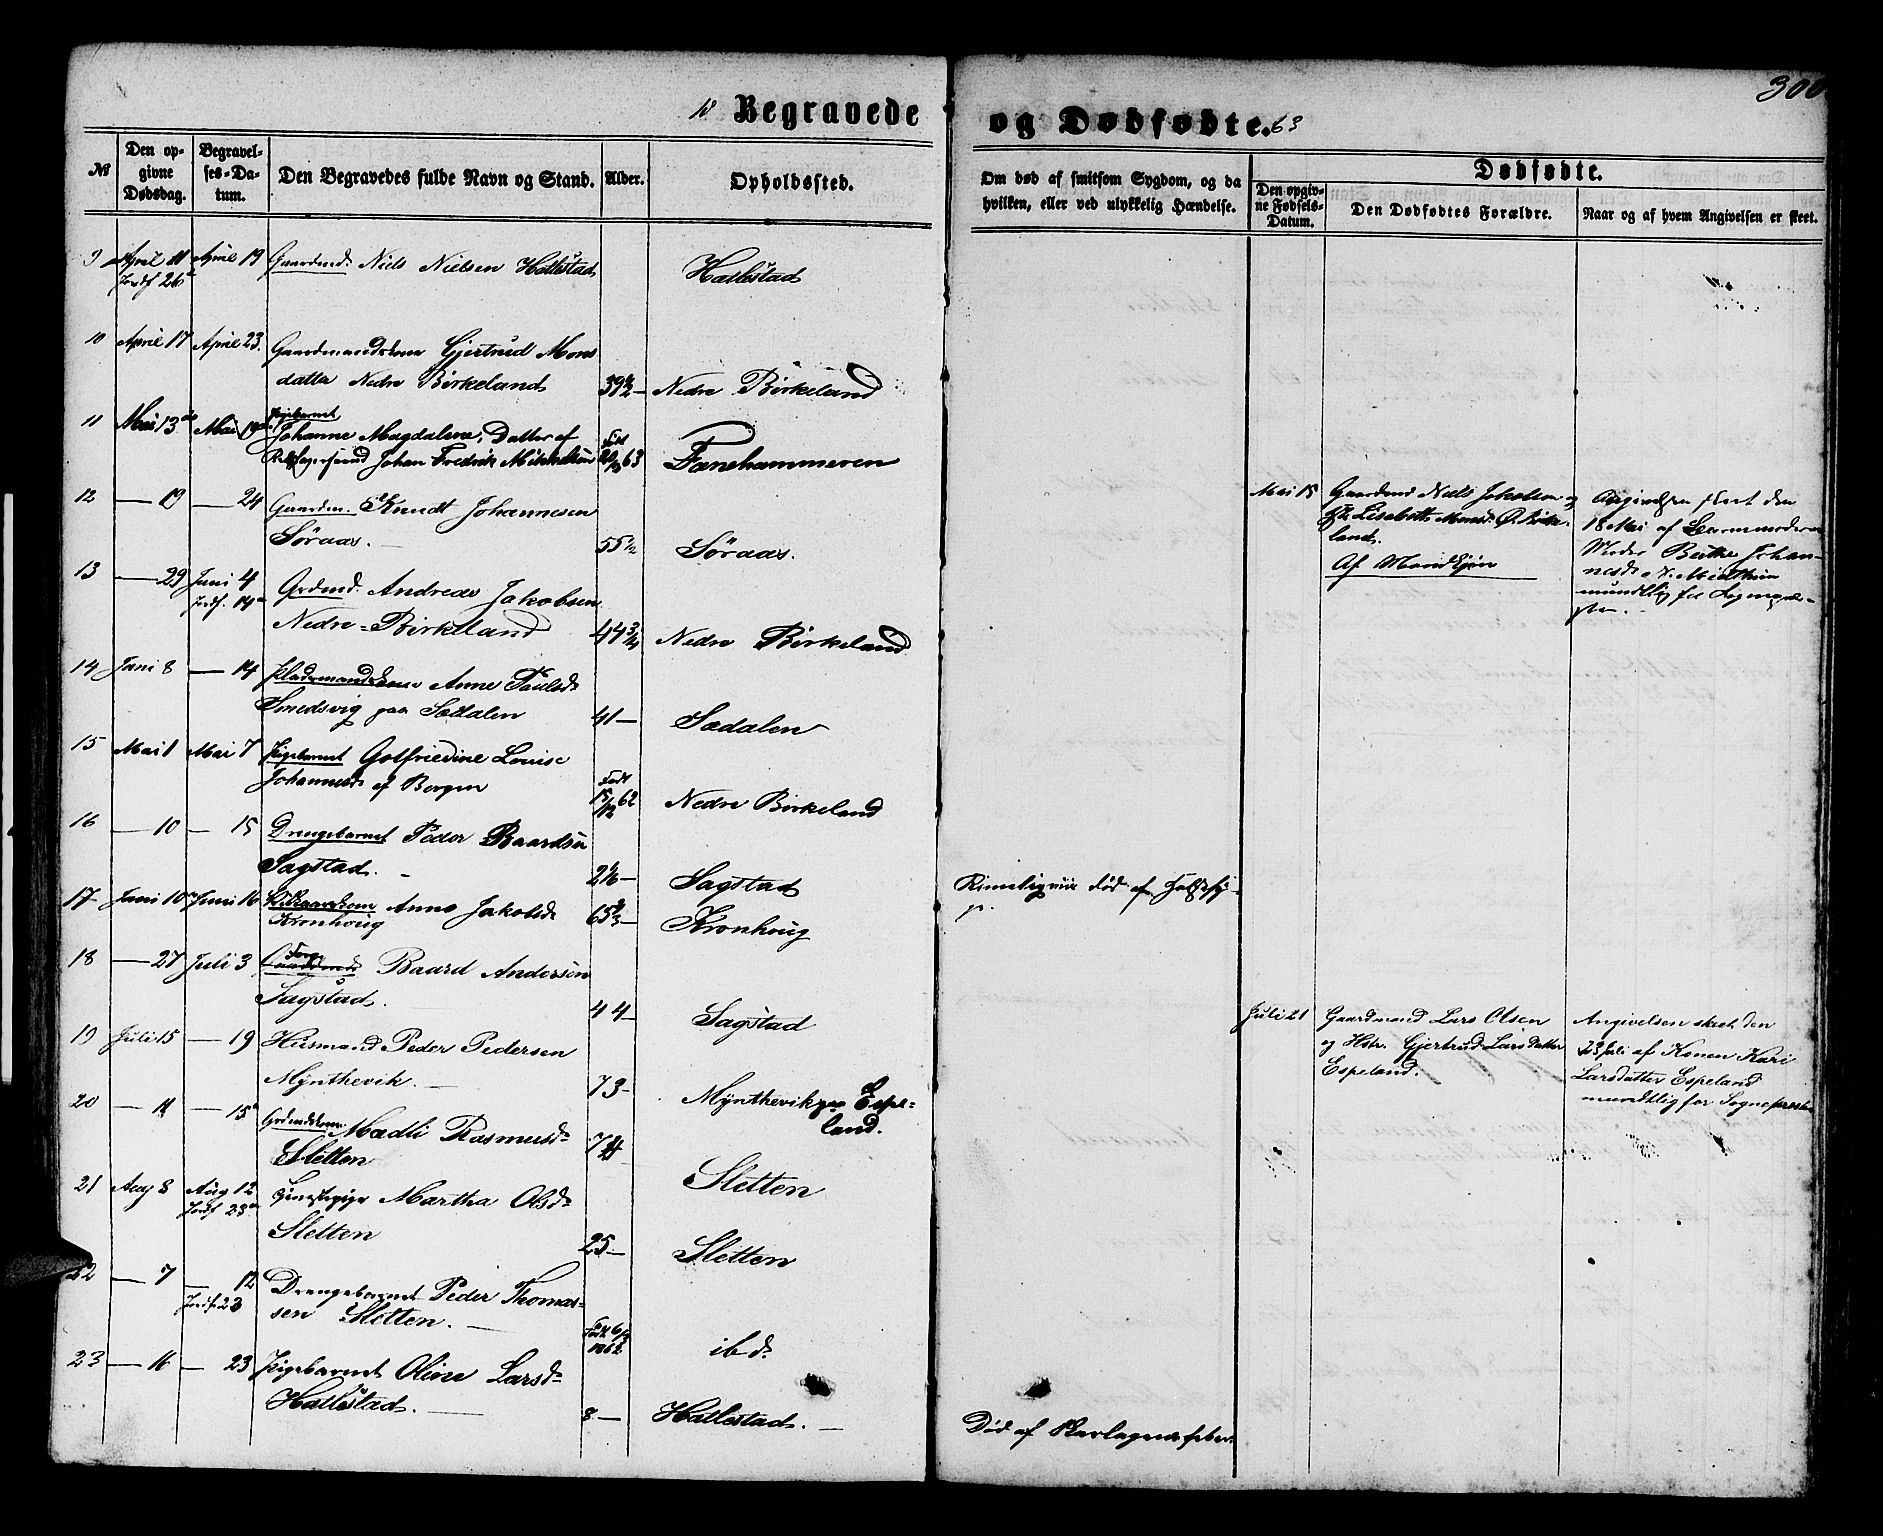 300
18 Begravede og Dødfødte. 63
№ Den opgivne Dødsdag. Begravelses-Datum. Den Begravedes fulde Navn og Stand. Alder. Opholdssted.
Om død af smitsom Sygdom, og da hvilken, eller ved ulykkelig Hændelse.
Dødfødte.
Den opgivne Fødsels-Datum. Den Dødfødtes Forældre. Naar og af hvem Angivelsen er skeet.
9 April 11 April 19 Gaardmd. Niels Nielsen Hatlestad Hatlestad
Jordf 26
10 April 17 April 23. Gaardmandskone Gjertrud Mons
datter Nedre Birkeland 39 Nedre Birkeland
11 Mai 13 Mai 19 Pigebarnet
Johanne Magdalene, Datter af Født
Johan Fredrik Mikkelsen 63 Fanehammeren
12 — 19 — 24 Gaardm. Knudt Johannesen
Søraas. — 55 1/2 Søraas.
Mai 15 Gaardmd Niels Jakobsen og
Lisebeth Monsd. Ø. Birke-
land.
Af Mandkjøn
Angivelsen skeet den
18 Mai af
Moder Berthe Johan-
nesd
mundtlig for Sognepræ-
sten. —
13 — 29 Juni 4 Grdmd. Andreas Jakobsen
Jordf. 14
Nedre-Birkeland 44 3/4 Nedre Birkeland
14 Juni 8 — 14 Pladsmandskone Anne Paulsd.
Smedsvig paa Sædalen 41 — Sædalen
15 Mai 1 Mai 7 Pigebarnet Gotfriedine Louise
Johannesd. af Bergen Født
15/12 62 Nedre Birkeland
16 — 10 — 15 Drengebarnet Peder Baardsen
Sagstad. — 2 1/6 — Sagstad
17 Juni 10 Juni 16 Anna Jakobsd.
Kronhoug 65 — Kronhoug
Rimeligviis død af
18 — 27 Juli 3 Forh.
Gaardmd. Baard Andersen
Sagstad. 44 — Sagstad
19 Juli 15 — 19 Husmand Peder Pedersen
Mynthevik. — 73 — Mynthevik paa Espe-
land.
Juli 21 Gaardmand Lars Olsen
og Hstr. Gjertrud Lars Datter
Espeland.
Angivelsen skeet den
23 Juli af Konen Kari
Larsdatter Espeland
mundtlig for Sognepræsten
20 — 11 — 15 Grdmdskone Madli Rasmusd.
Sletten 74 Sletten
21 Aug 8 Aug 12 Tjenestepige Martha Olsd.
Jordf 23
Sletten 25 — Sletten
22 — 7 — 12 Drengebarnet Peder Thomas-
Jordf. 23
sen Sletten. — Født 6/
1862 ibd.
23 — 16 — 23 Pigebarnet Oline Larsd.
Hatlestad. — 8 — Hatlestad. —
Død af Skarlagensfeber.